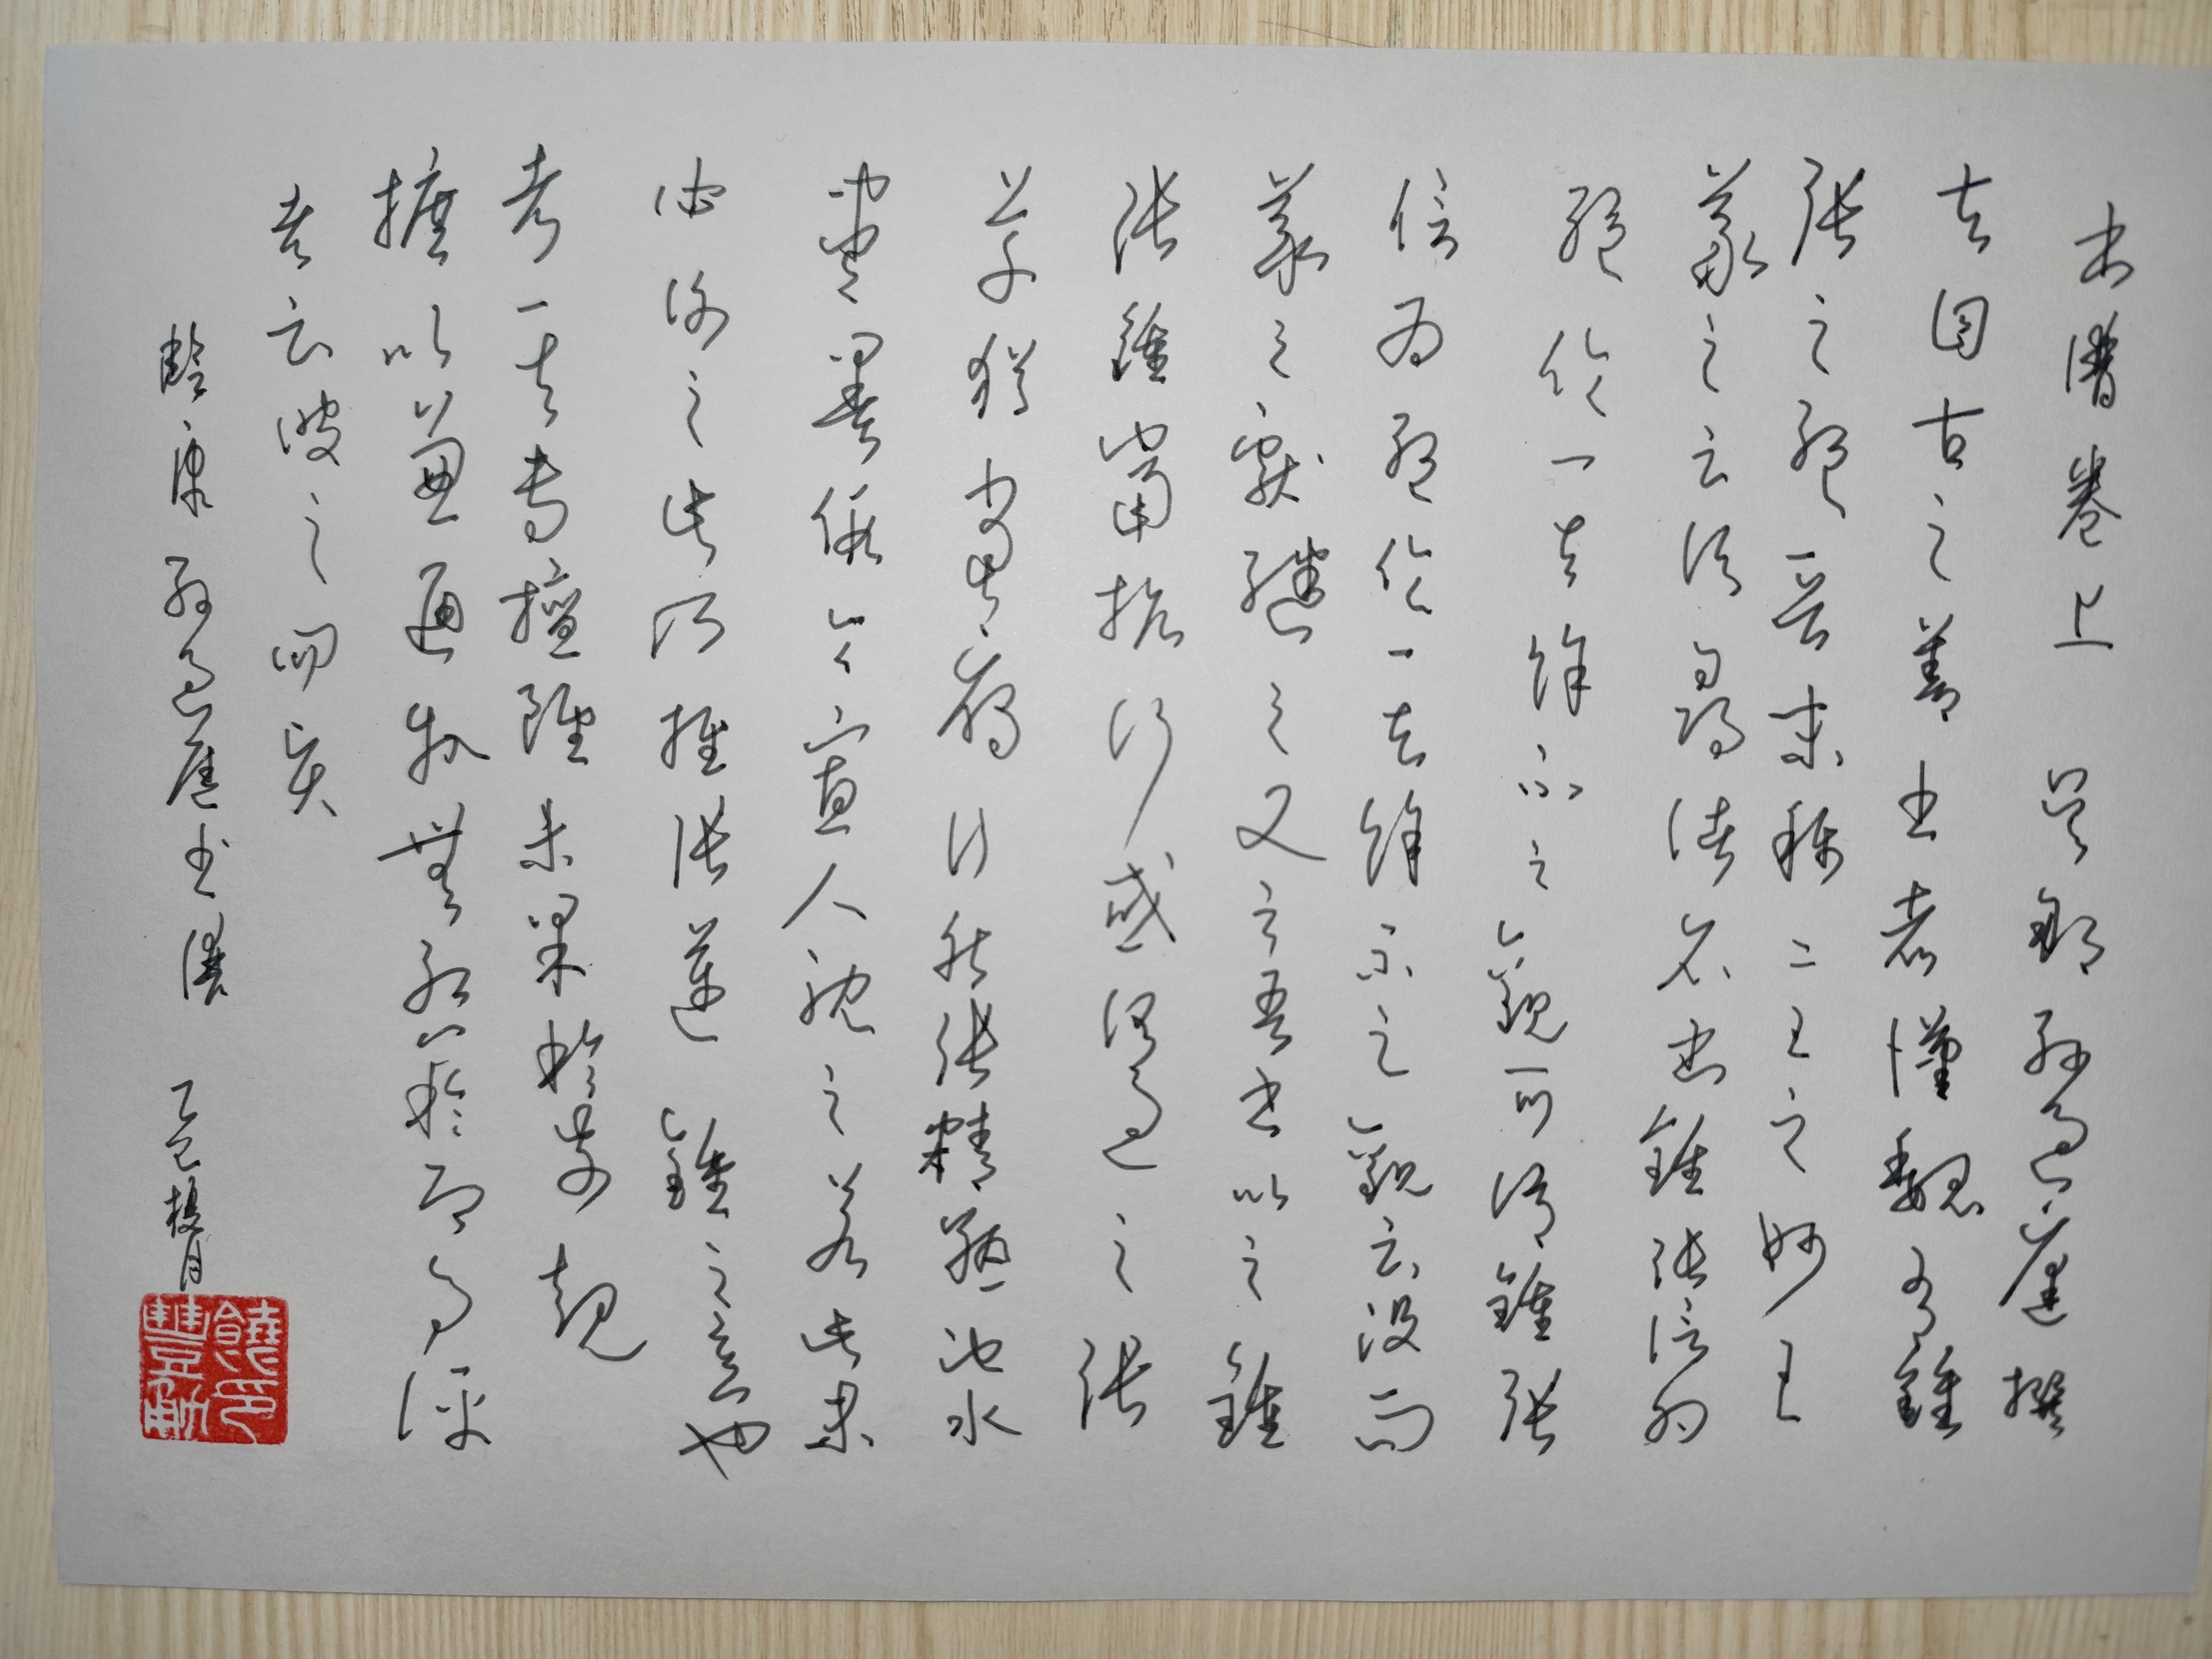 書譜卷上 吳郡孫過庭撰
夫自古之善書者漢魏有鍾
張之絕晉末稱二王之妙王
羲之云頃尋諸名書鍾張信為
絕倫其餘不足觀可謂鍾張
信為絕倫其餘不足觀云沒而
羲之獻繼之又云吾書比之鍾
張鍾當抗行或謂過之張
草猶當雁行然張精熟池水
盡墨假令寡人耽之若此未
必謝之此乃推張邁鍾之意也
考其專擅雖未果於前規
摭以兼通故無慚於即事評
者云彼之四賢
臨唐孫過庭書譜 乙巳